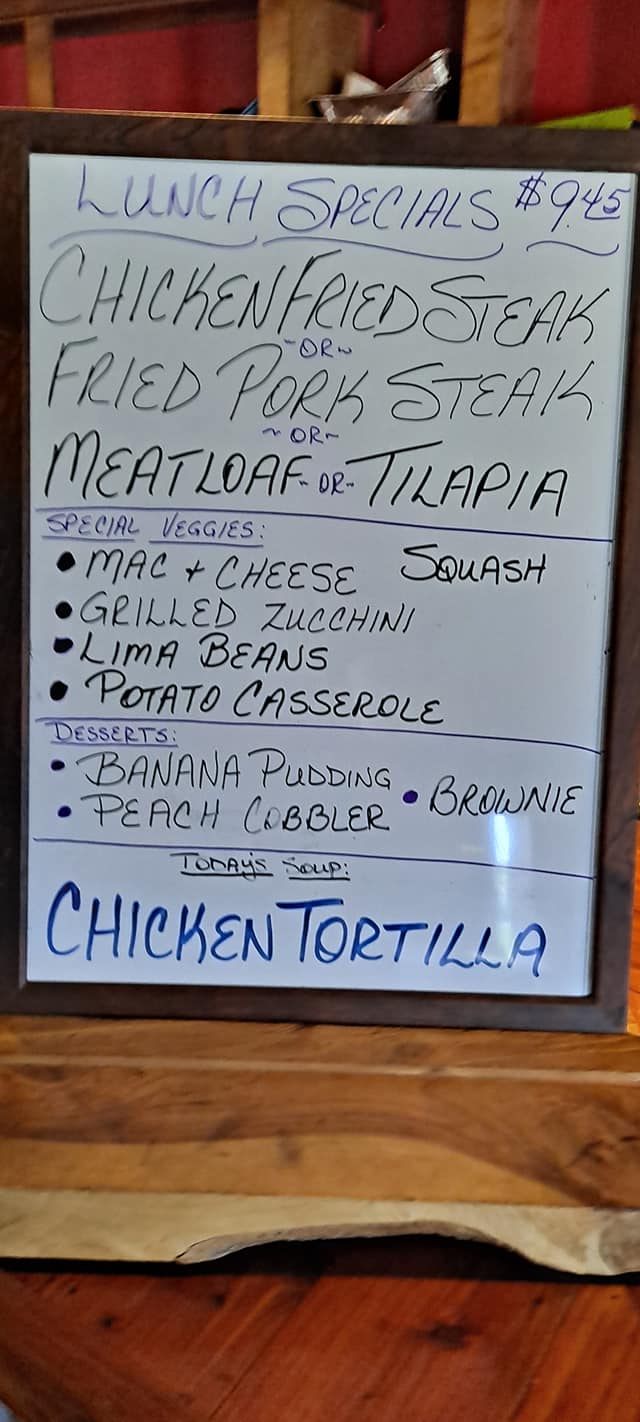 LUNCH SPECIALS $9.45
CHICKEN FRIED STEAK
~OR~
FRIED PORK STEAK
~OR~
MEATLOAF -OR- TILAPIA
SPECIAL VEGGIES:
• MAC + CHEESE SQUASH
• GRILLED ZUCCHINI
• LIMA BEANS
• POTATO CASSEROLE
DESSERTS:
• BANANA PUDDING
• PEACH COBBLER • BROWNIE
TODAY'S SOUP:
CHICKEN TORTILLA